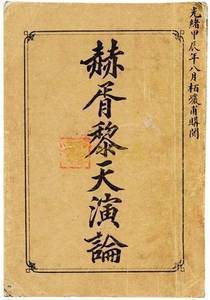 光緒甲辰年八月栢濃甫購閱
赫胥黎天演論